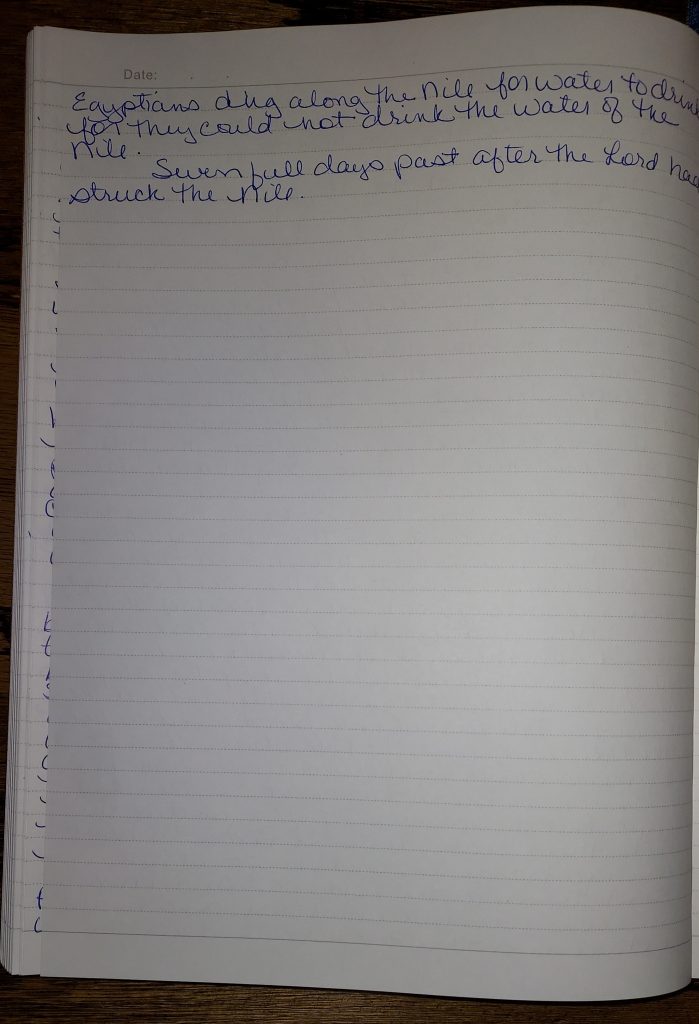 Date:
Egyptians dug along the Nile for water to drink
for they could not drink the water of the
Nile.
Seven full days past after the Lord had
struck the Nile.